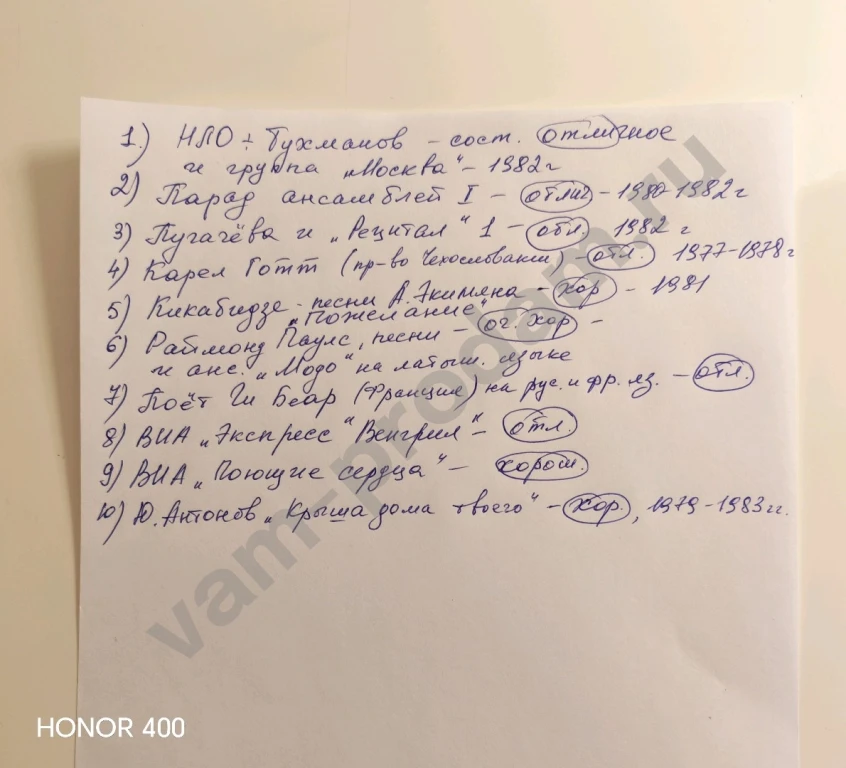 1.) НЛО + Тухманов - сост. отличное
и группа „Москва" - 1982г
2) Парад ансамблей I - отлич - 1980-1982г
3) Пугачёва и „Рецитал" 1 - отл. 1982 г
4) Карел Готт (пр-во Чехословакии) - отл. 1977-1978г
5) Кикабидзе - песни А. Экимяна - хор - 1981
„Пожелание"
6) Раймонд Паулс, песни - оч. хор -
и анс. „Модо" на латыш. языке
7) Поёт Ги Беар (Франция) на рус. и фр. яз. - отл.
8) ВИА „Экспресс" Венгрия" - отл.
9) ВИА „Поющие сердца" - хорош.
10) Ю. Антонов „Крыша дома твоего" - хор., 1979-1983гг.
vam-prodam.ru
HONOR 400